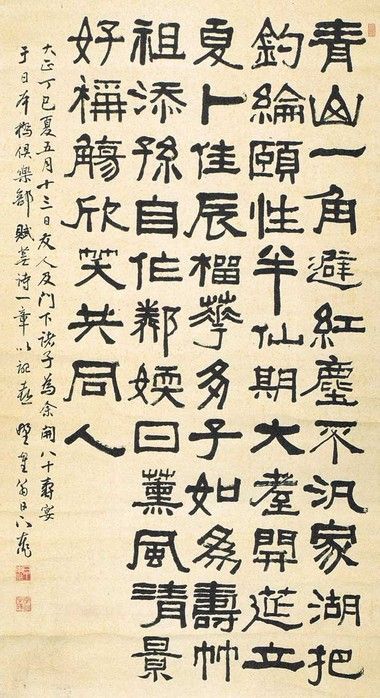 青山一角避紅塵不汎家湖把
釣綸頤性半仙期大耋開莚立
夏卜佳辰榴華多子如爲壽竹
祖添孫自作鄰媆日薰風清景
好稱觴欣笑共同人
大正丁巳夏五月十三日友人及門下諸子為余開八十壽宴
于日本橋俱樂部賦詩一章以記喜 翁日下東